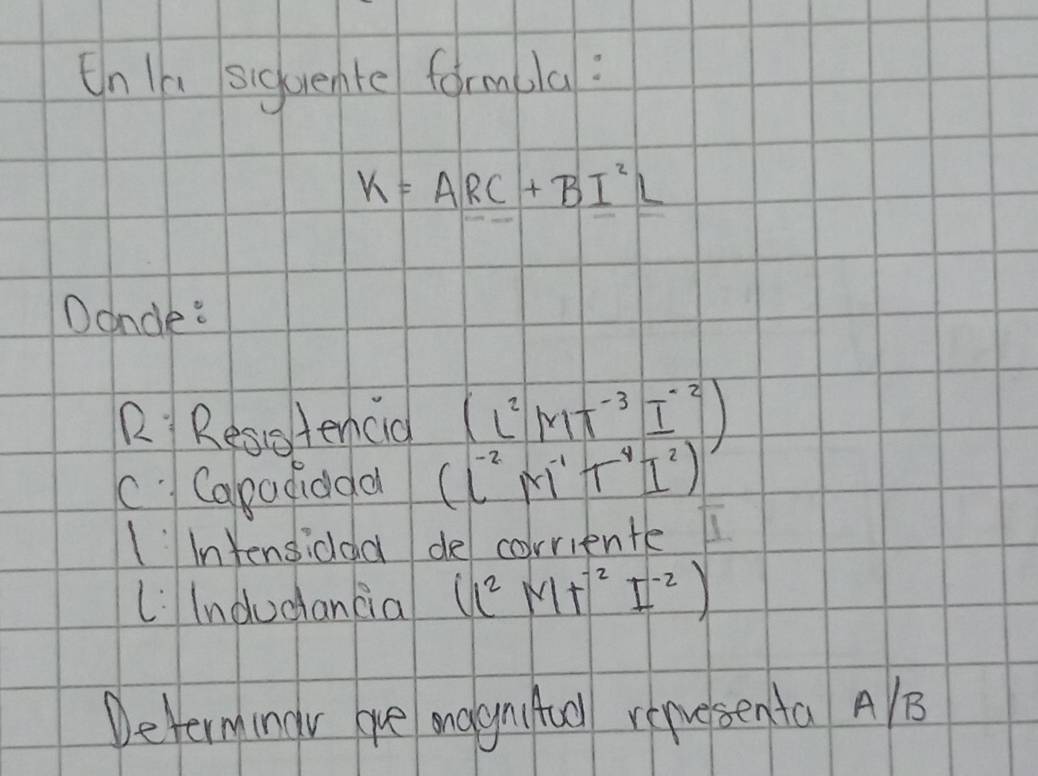 En la siguiente fórmula:
K = ARC + BI²L
Donde:
R: Resistencia (L² MT⁻³ I⁻²)
C: Capacidad (L⁻² M⁻¹ T⁴ I²)
I: Intensidad de corriente I
L: Inductancia (L² MT⁻² I⁻²)
Determinar que magnitud representa A/B